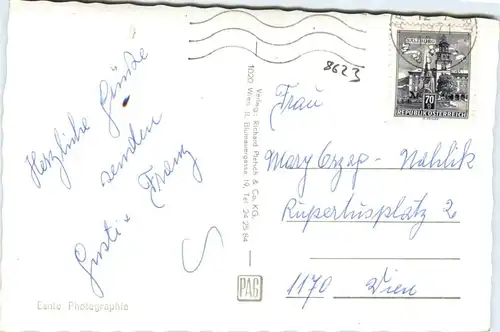 Herzliche Grüße
senden
Gusti + Franz
Echte Photographie
Verlag: Richard Pietsch & Co. KG.
1020 Wien II, Blumauergasse 19, Tel. 24 25 84
PAG
8623
SALZBURG
70
REPUBLIK ÖSTERREICH
Frau
Mary Czap - Nahlik
Rupertusplatz 2
1170 Wien